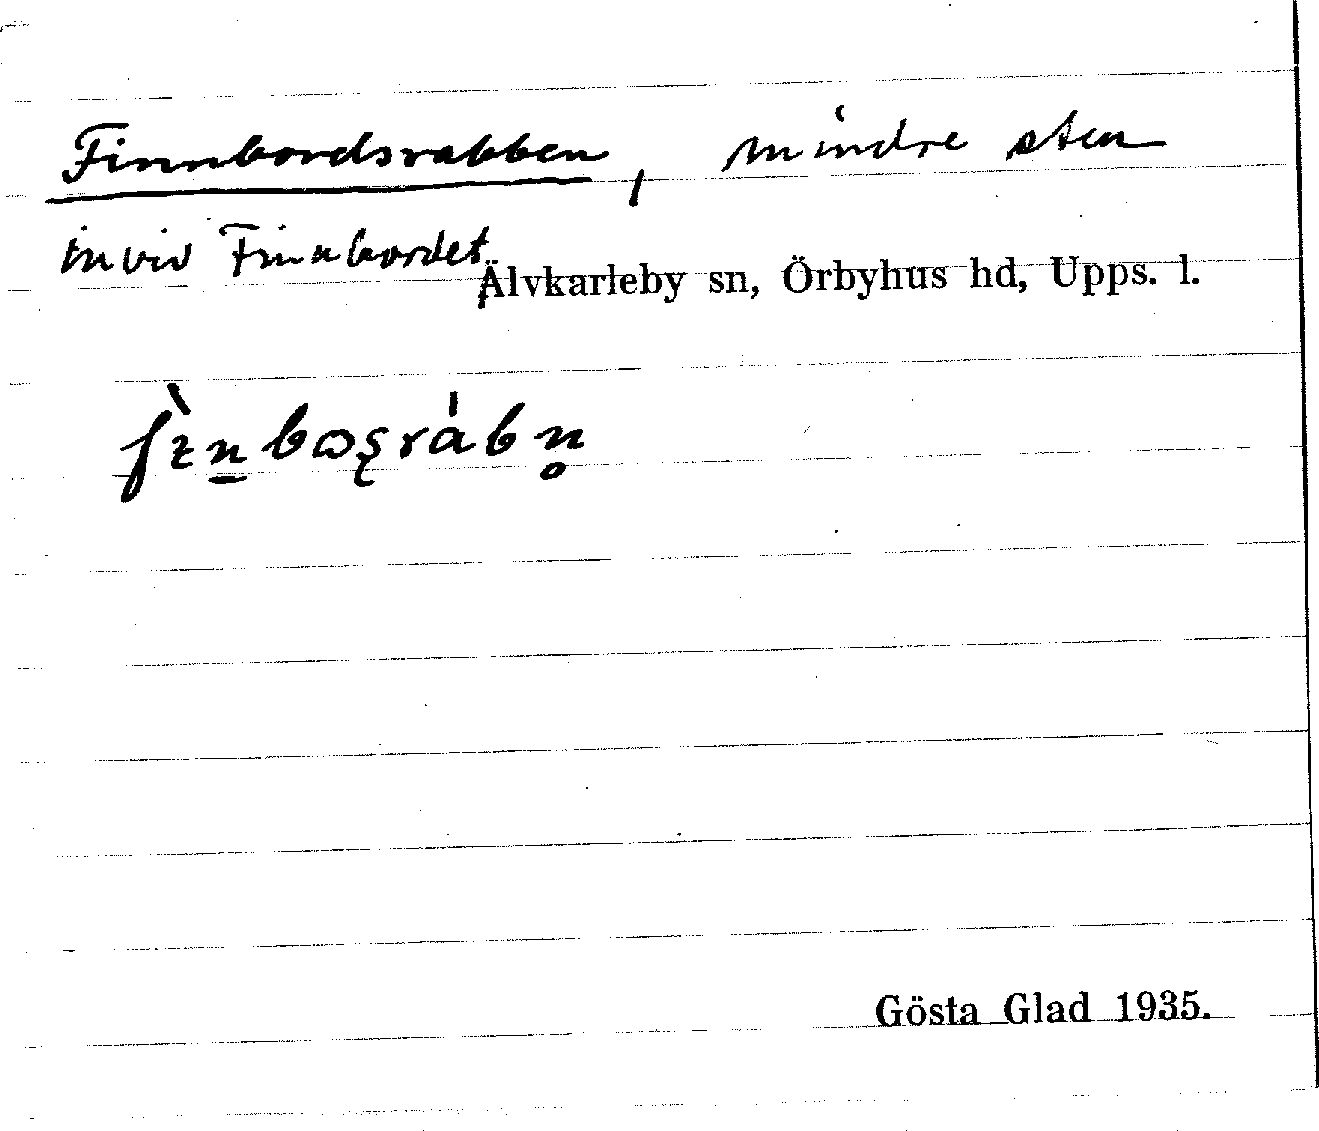 Finnbordsrabben, mindre sten
invid Finnbordet.
Älvkarleby sn, Örbyhus hd, Upps. l.
fìn̲bɷʂrábn̥
Gösta Glad 1935.